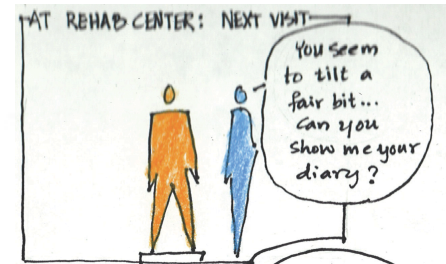 AT REHAB CENTER: NEXT VISIT
You seem
to tilt a
fair bit...
Can you
show me your
diary?